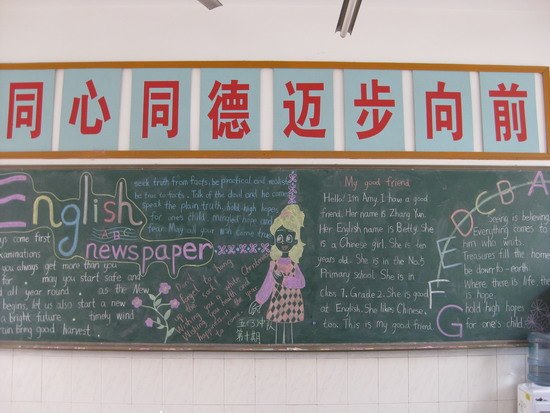 同心同德 迈步向前
English
ABC
newspaper
seek truth from facts, be practical and realistic
be true to facts. Talk of the devil and he comes
speak the plain truth, hold high hopes
for one's child mingled hope and
fear. May all your wish come true
comes first
examinations
you always get more than you
for may you start safe and
all year round. as the New
begins, let us also start a new
a bright future. timely wind
bring good harvest
Christmas
第十期
My good friend
Hello! I'm Amy. I have a good
friend. Her name is Zhang Yun.
Her English name is Betty. She is
a Chinese girl. She is ten
years old. She is in the No.5
Primary school. She is in
class 7. Grade 2. She is good
at English. She likes Chinese,
too. This is my good friend.
A B C D E F G
seeing is believing
Everything comes to
him who waits.
Treasures fill the home
be down-to-earth
Where there is life, the
is hope.
hold high hopes
for one's child